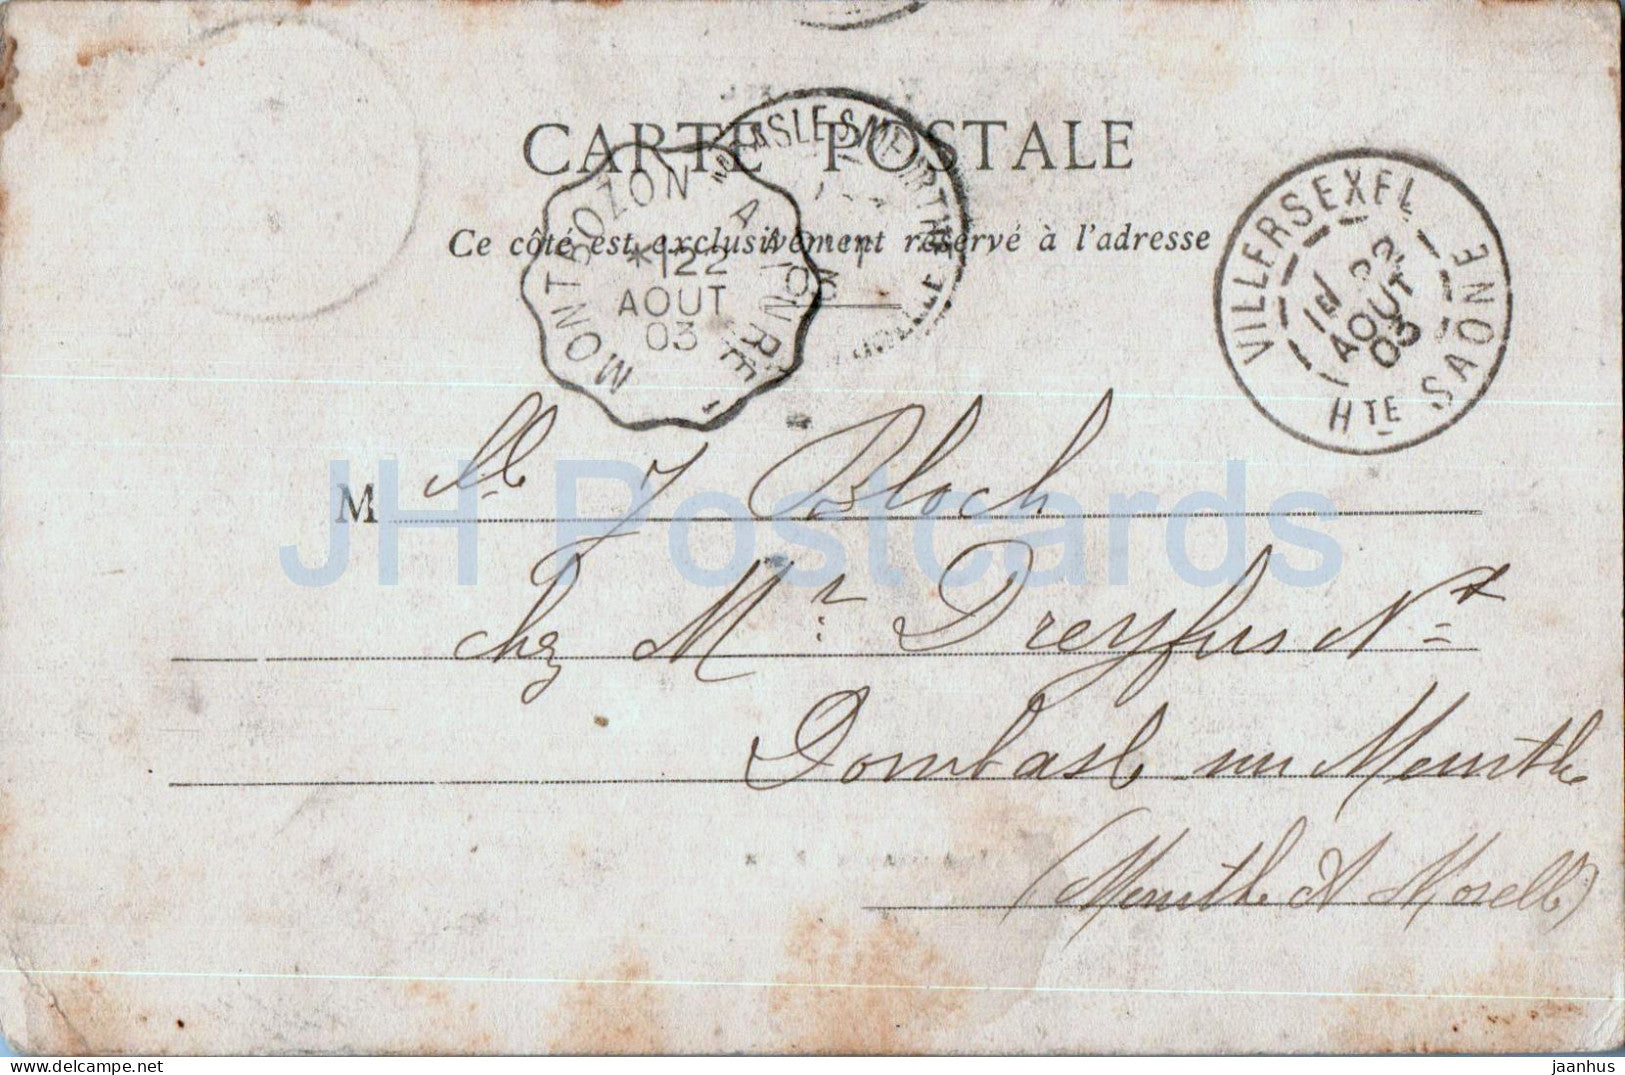 CARTE POSTALE
Ce côté est exclusivement réservé à l'adresse
MONTBOZON A LURE
*122
AOUT
03
VILLERSEXEL
22
AOUT
03
HTE SAONE
Mlle J Bloch
chez Mr Dreyfus Nt
Dombasle sur Meurthe
(Meurthe & Moselle)
JH Postcards
www.delcampe.net
jaanhus